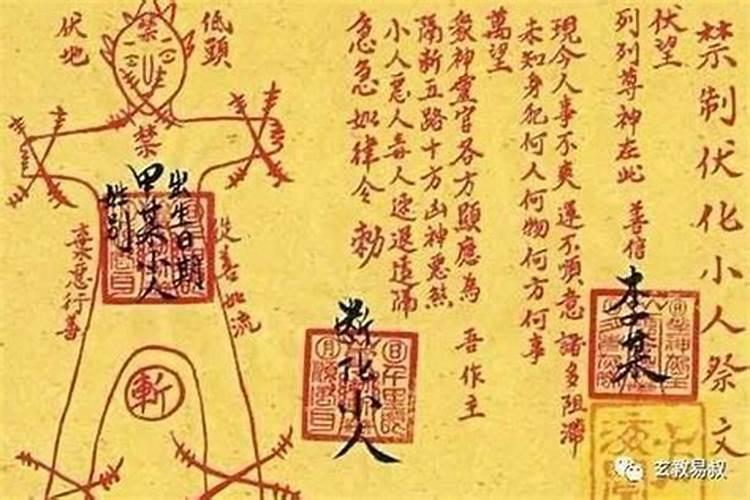 禁制伏化小人祭文
伏望
列列尊神在此 善信
李某
現今人事不爽 運不順意 諸多阻滯
未知身犯何人何物何方何事
萬望
眾神靈官各方顯應為 吾作主
隔斷五路十方凶神惡煞
小人惡人毒人速退遠隔
急急如律令 勅
斷化小人
低頭
禁
伏地
禁
出生日期
甲某小人
姓別
從善如流
棄惡行善
斬
玄教易叔